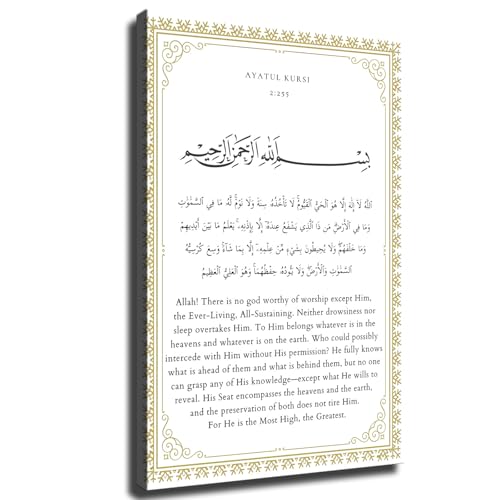 AYATUL KURSI
2:255
بِسْمِ اللهِ الرَّحْمَنِ الرَّحِيمِ
اللَّهُ لَا إِلَٰهَ إِلَّا هُوَ الْحَيُّ الْقَيُّومُ ۚ لَا تَأْخُذُهُ سِنَةٌ وَلَا نَوْمٌ ۚ لَّهُ مَا فِي السَّمَاوَاتِ
وَمَا فِي الْأَرْضِ ۗ مَن ذَا الَّذِي يَشْفَعُ عِندَهُ إِلَّا بِإِذْنِهِ ۚ يَعْلَمُ مَا بَيْنَ أَيْدِيهِمْ
وَمَا خَلْفَهُمْ ۖ وَلَا يُحِيطُونَ بِشَيْءٍ مِّنْ عِلْمِهِ إِلَّا بِمَا شَاءَ ۚ وَسِعَ كُرْسِيُّهُ
السَّمَاوَاتِ وَالْأَرْضَ ۖ وَلَا يَئُودُهُ حِفْظُهُمَا ۚ وَهُوَ الْعَلِيُّ الْعَظِيمُ
Allah! There is no god worthy of worship except Him,
the Ever-Living, All-Sustaining. Neither drowsiness nor
sleep overtakes Him. To Him belongs whatever is in the
heavens and whatever is on the earth. Who could possibly
intercede with Him without His permission? He fully knows
what is ahead of them and what is behind them, but no one
can grasp any of His knowledge—except what He wills to
reveal. His Seat encompasses the heavens and the earth,
and the preservation of both does not tire Him.
For He is the Most High, the Greatest.